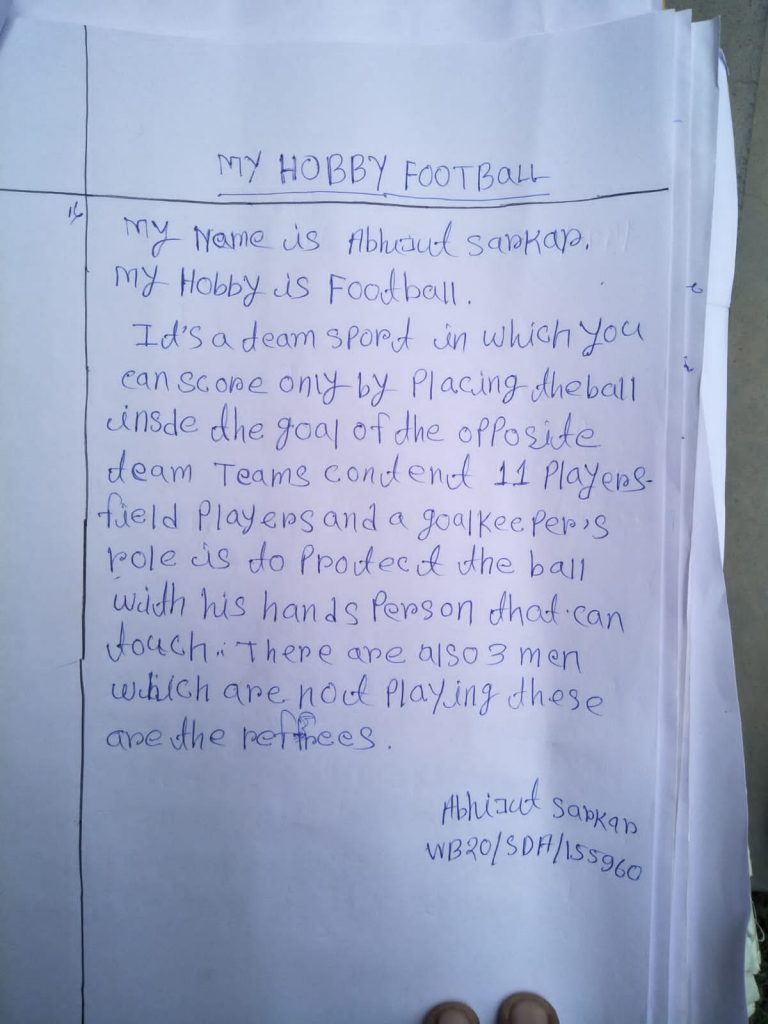 MY HOBBY FOOTBALL
My Name is Abhijit Sarkar.
My Hobby is Football.
It's a team sport in which you
can score only by Placing the ball
insde the goal of the opposite
team Teams contend 11 Players-
field Players and a goalkeeper's
role is to Protect the ball
with his hands Person that can
touch.. There are also 3 men
which are not Playing these
are the reffrees.
Abhijit Sarkar
WB20/SDA/155960